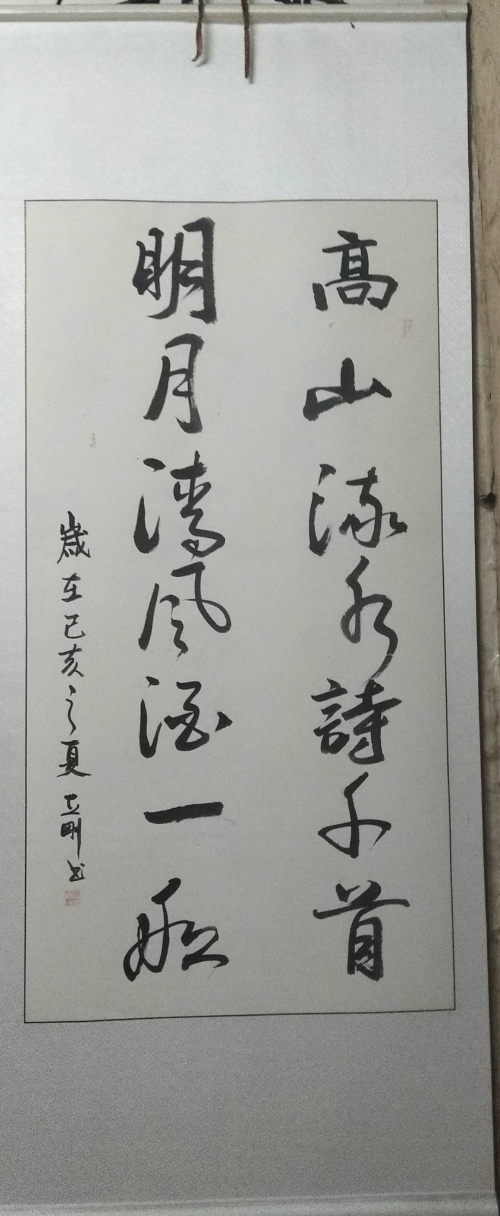 高山流水詩千首
明月清風酒一船
歲在己亥之夏 刚书